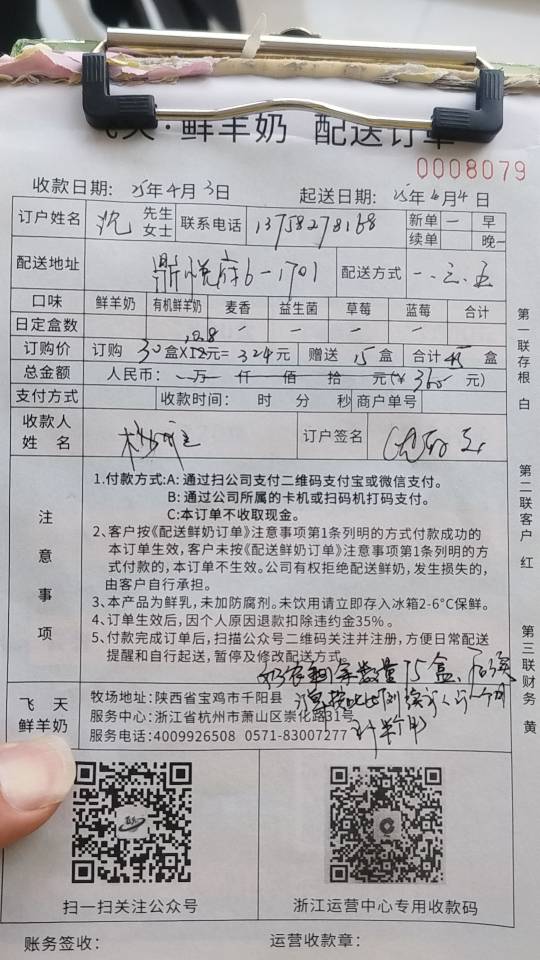 飞天·鲜羊奶 配送订单
0008079
收款日期: 25年4月3日 起送日期: 25年4月4日
订户姓名 沈 先生 女士 联系电话 13758278168 新单 一 早
续单 晚一
配送地址 鼎悦府6-1701 配送方式 一、三、五
口味 鲜羊奶 有机鲜羊奶 麦香 益生菌 草莓 蓝莓 合计
日定盒数 一 一 一 一
10.8
订购价 订购 30盒X12元=324元 赠送 15盒 合计45盒
总金额 人民币: 万 仟 佰 拾 元(¥ 360 元)
支付方式 收款时间: 时 分 秒 商户单号
收款人
姓 名 订户签名
注意事项
1.付款方式:A: 通过扫公司支付二维码支付宝或微信支付。
B: 通过公司所属的卡机或扫码机打码支付。
C:本订单不收取现金。
2、客户按《配送鲜奶订单》注意事项第1条列明的方式付款成功的
本订单生效,客户未按《配送鲜奶订单》注意事项第1条列明的方
式付款的,本订单不生效。公司有权拒绝配送鲜奶,发生损失的,
由客户自行承担。
3、本产品为鲜乳,未加防腐剂。未饮用请立即存入冰箱2-6°C保鲜。
4、订单生效后,因个人原因退款扣除违约金35%。
5、付款完成订单后,扫描公众号二维码关注并注册,方便日常配送
提醒和自行起送,暂停及修改配送方式。
数量15盒、后续
飞 天
鲜羊奶
牧场地址:陕西省宝鸡市千阳县
服务中心:浙江省杭州市萧山区崇化路31号
服务电话:4009926508 0571-83007277
扫一扫关注公众号
浙江运营中心专用收款码
账务签收: 运营收款章:
第一联存根 白
第二联客户 红
第三联财务 黄